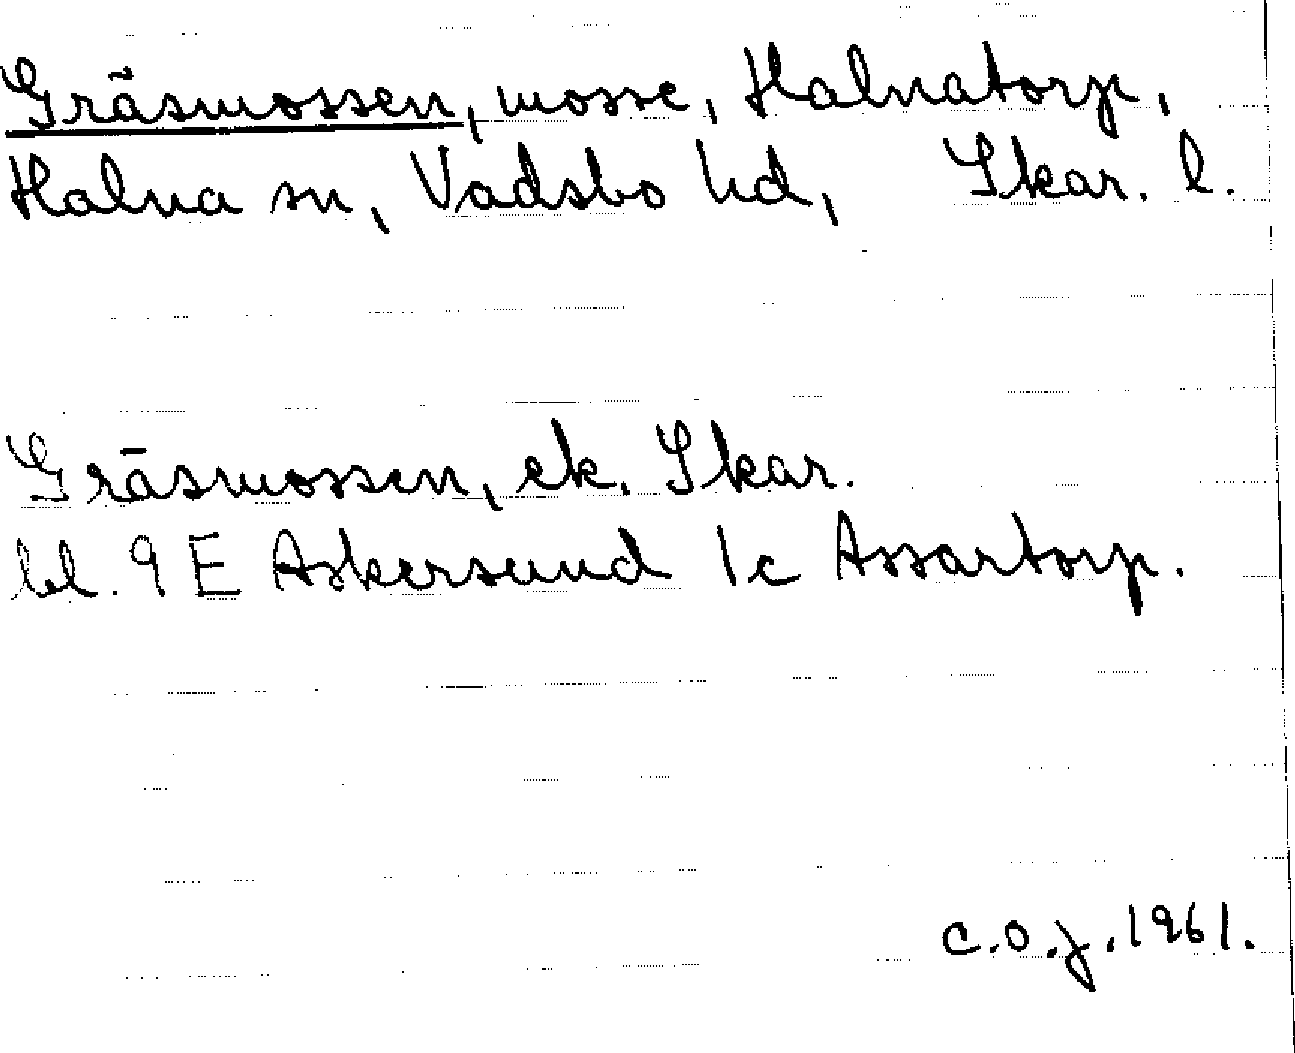 Gräsmossen, mosse, Halnatorp,
Halna sn, Vadsbo hd, Skar. l.
Gräsmossen, ek. Skar.
bl. 9 E Askersund 1c Assartorp.
C.O.J. 1961.